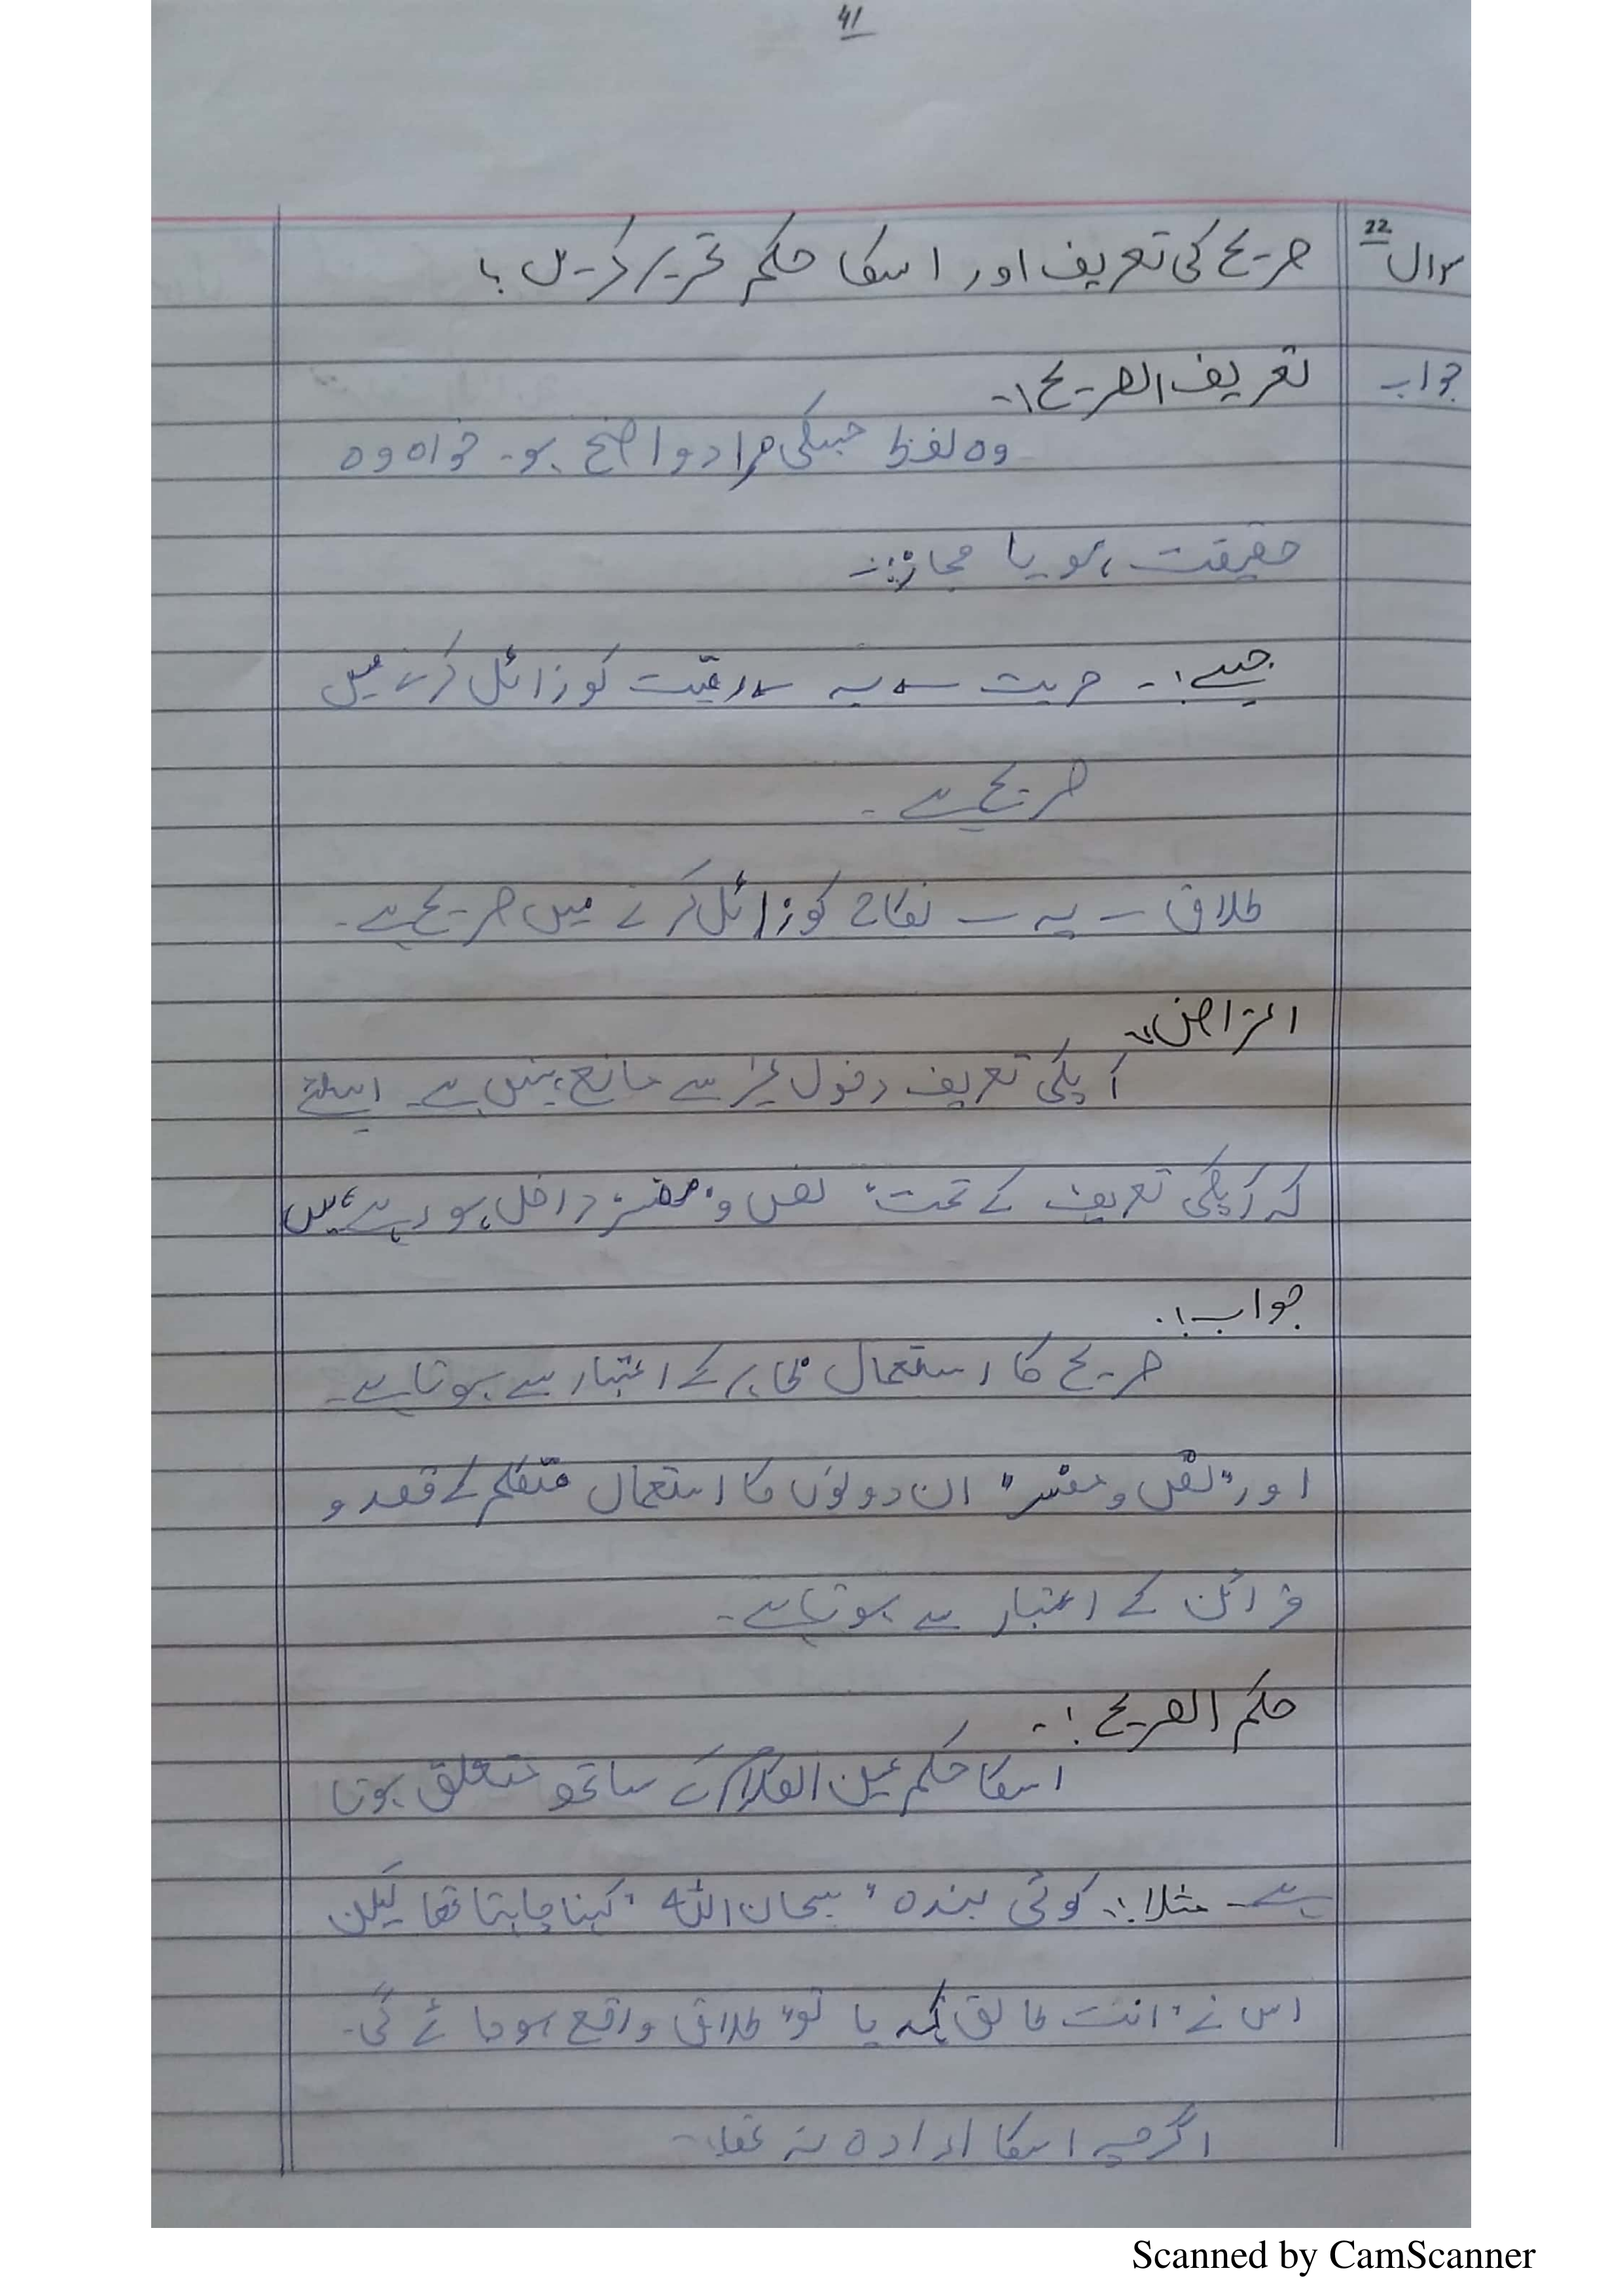 41
سوال 22 صریح کی تعریف اور اسکا حکم تحریر کریں؟
جواب تعریف الصریح:-
وہ لفظ جسکی مراد واضح ہو۔ خواہ وہ
حقیقت ہو یا مجاز:-
جیسے:- حریت یہ رقیت کو زائل کرنے میں
صریح ہے۔
طلاق – یہ – نکاح کو زائل کرنے میں صریح ہے۔
اعتراض:-
آپکی تعریف دخول غیر سے مانع نہیں ہے۔ اسلئے
کہ آپکی تعریف کے تحت "نص و مفسر" داخل ہو رہے ہیں
جواب:-
صریح کا استعمال ظاہر کے اعتبار سے ہوتا ہے۔
اور "نص و مفسر" ان دونوں کا استعمال متکلم کے قصد و
قرائن کے اعتبار سے ہوتا ہے۔
حکم الصریح:-
اسکا حکم عین الکلام کے ساتھ متعلق ہوتا
ہے۔ مثلا:- کوئی بندہ "سبحان اللہ" کہنا چاہتا تھا لیکن
اس نے "انت طالق" کہہ دیا تو طلاق واقع ہو جائے گی۔
اگرچہ اسکا ارادہ نہ تھا۔
Scanned by CamScanner